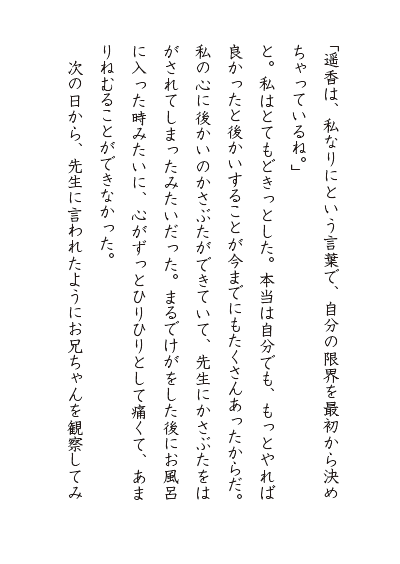 「遥香は、私なりにという言葉で、自分の限界を最初から決め
ちゃっているね。」
と。私はとてもどきっとした。本当は自分でも、もっとやれば
良かったと後かいすることが今までにもたくさんあったからだ。
私の心に後かいのかさぶたができていて、先生にかさぶたをは
がされてしまったみたいだった。まるでけがをした後にお風呂
に入った時みたいに、心がずっとひりひりとして痛くて、あま
りねむることができなかった。
次の日から、先生に言われたようにお兄ちゃんを観察してみ